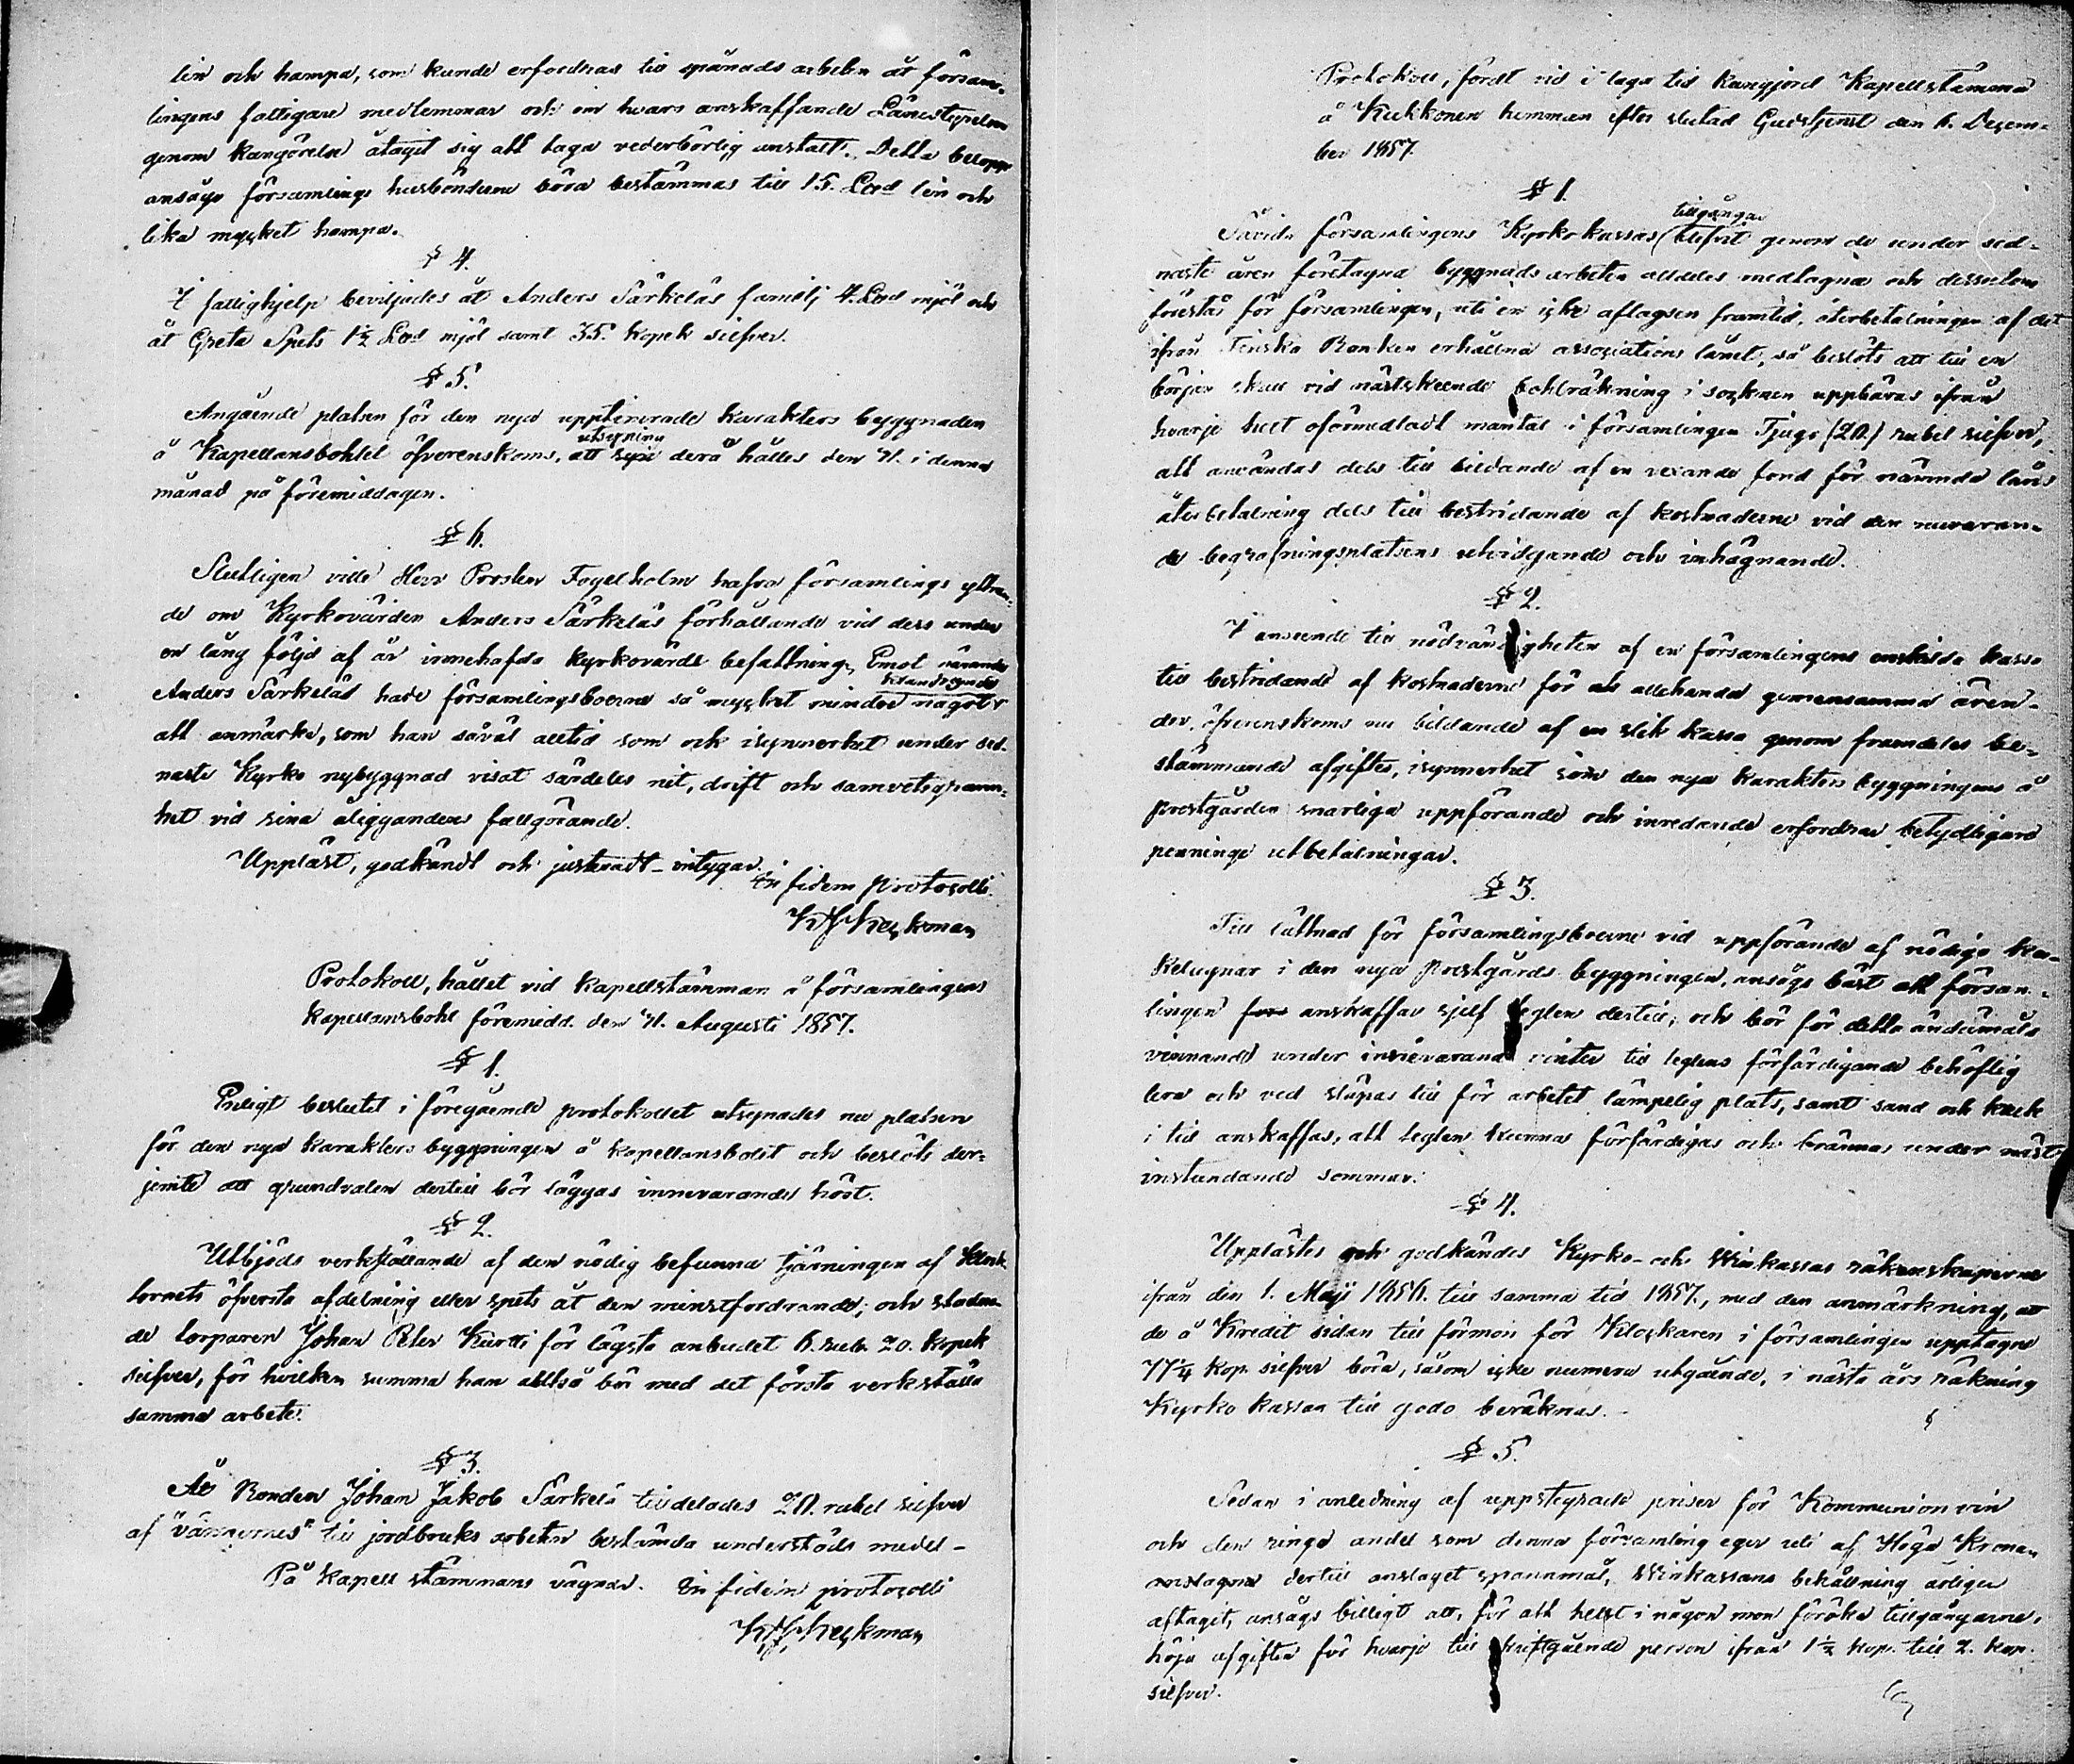 lin och hampa, som kunde erfordras till spånads arbeten åt försam-
lingens fattigare medlemmar och om hvars anskaffande Länestyrelsen
genom kungörelse åtagit sig att taga vederbörlig anstalt. Detta belopp
ansågo församlings husbönderne böra bestämmas till 15. Lod lin och
lika mycket hampa.
§ 4.
I fattighjelp beviljades åt Anders Särkeläs familj 4. Lod mjöl och
åt Greta Spets 1½ Lod mjöl samt 35. kopek silfver.
§ 5.
Angående platsen för den nya upptimrade karakters byggnaden
utsyning
å Kapellansbohlet öfverenskoms, att syn derå hålles den 4. i denna
månad på förmiddagen.
§ 6.
Slutligen ville Herr Prosten Fogelholm hafva församlings yttran-
de om Kyrkovärden Anders Särkeläs förhållande vid dess under
en lång följd af år innehafda Kyrkovärds befattning. Emot nämnde
klandrande
Anders Särkeläs hade församlingsboerne så mycket mindre något
att anmärka, som han såväl alltid som och isynnerhet under sed-
naste Kyrko nybyggnad visat särdeles nit, drift och samvetsgrann-
het vid sina åliggandens fullgörande.
Uppläst, godkändt och justeradt - intygar.
In fidem protocolli.
K J Heickman
Protokoll, hållet vid kapellstämman å församlingens
kapellansbohl förmidd. den 4. Augusti 1857.
§ 1.
Enligt beslutet i föregående protokollet utsynades nu platsen
för den nya karakters byggningen å kapellansbolet och beslöts der-
jemte att grundvalen dertill bör läggas innevarande höst.
§ 2.
Utbjöds verkställande af den nödig befunna tjärningen af Klock
tornets öfversta afdelning eller spets åt den minstfordrande; och stadna-
de torparen Johan Peter Kurtti för lägsta anbudet 6. rub. 20. kopek
silfver, för hvilken summa han alltså bör med det första verkställa
samma arbete.
§ 3.
Åt Bonden Johan Jakob Särkelä tilldelades 20. rubel silfver
af "vännernes" till jordbruks arbeten bestämda understöds medel -
På Kapell stämmans vägnar. In fidem protocolli
K J Heickman
Protokoll, fördt vid i laga tid kungjord Kapellstämma
å Kukkonen hemman efter slutad Gudstjenst den 6. Decem-
ber 1857.
§ 1.
tillgångar
Såvida församlingens Kyrkokassas blifvit genom de under sed-
naste åren företagna byggnads arbeten alldeles medtagna och dessutom
förestår för församlingen, uti en icke aflägsen framtid, återbetalningen af det
ifrån Finska Banken erhållna associations lånet, så beslöts att till en
början skall vid nästskeende bohlräkning i socknen uppbäras ifrån
hvarje helt oförmedladt mantal i församlingen Tjugo (20.) rubel silfver,
att användas dels till bildande af en vexande fond för nämnda låns
återbetalning dels till bestridande af kostnaderne vid den nuvaran-
de begrafningsplatsens utvidgande och inhägnande.
§ 2.
I anseende till nödvändigheten af en församlingens enskilda kassa
till bestridande af kostnaderne för allehanda gemensamma ären-
der, öfverenskoms nu bildande af en slik kassa genom framdeles be-
stämmande afgifter, isynnerhet som den nya karakters byggningens å
prestgården snarliga uppförande och inredande erfordrar betydligare
penninge utbetalningar.
§ 3.
Till lättnad för församlingsboerne vid uppförande af nödiga ka-
kelugnar i den nya prestgårds byggningen, ansågs bäst att försam-
lingen anskaffar sjelf teglen dertill, och bör för detta ändamåls
vinnande under innevarande vinter till teglens förfärdigande behöflig
lera och ved släpas till för arbetet lämpelig plats, samt sand och kalk
i tid anskaffas, att teglen kunna förfärdigas och brännas under näst-
instundande sommar.
§ 4.
Upplästes och godkändes Kyrko- och Vinkassas räkenskaperne
ifrån den 1. Maji 1856. till samma tid 1857., med den anmärkning, att
de å Kredit sidan till förmon för Klockaren i församlingen upptagne
77¼ kop. silfver böra, såsom icke numera utgående, i nästa års räkning
Kyrko kassan till godo beräknas.
§ 5.
Sedan i anledning af uppstegrade priser för Kommunion vin
och den ringa andel som denna församling eger uti af Höga Kronan
anslagna dertill anslaget spannmål, Vinkassans behållning årligen
aftagit, ansågs billigt att, för att helst i någon mon föröka tillgångarne,
höja afgiften för hvarje till skriftgående person ifrån 1½ kop. till 2. kop.
silfver.